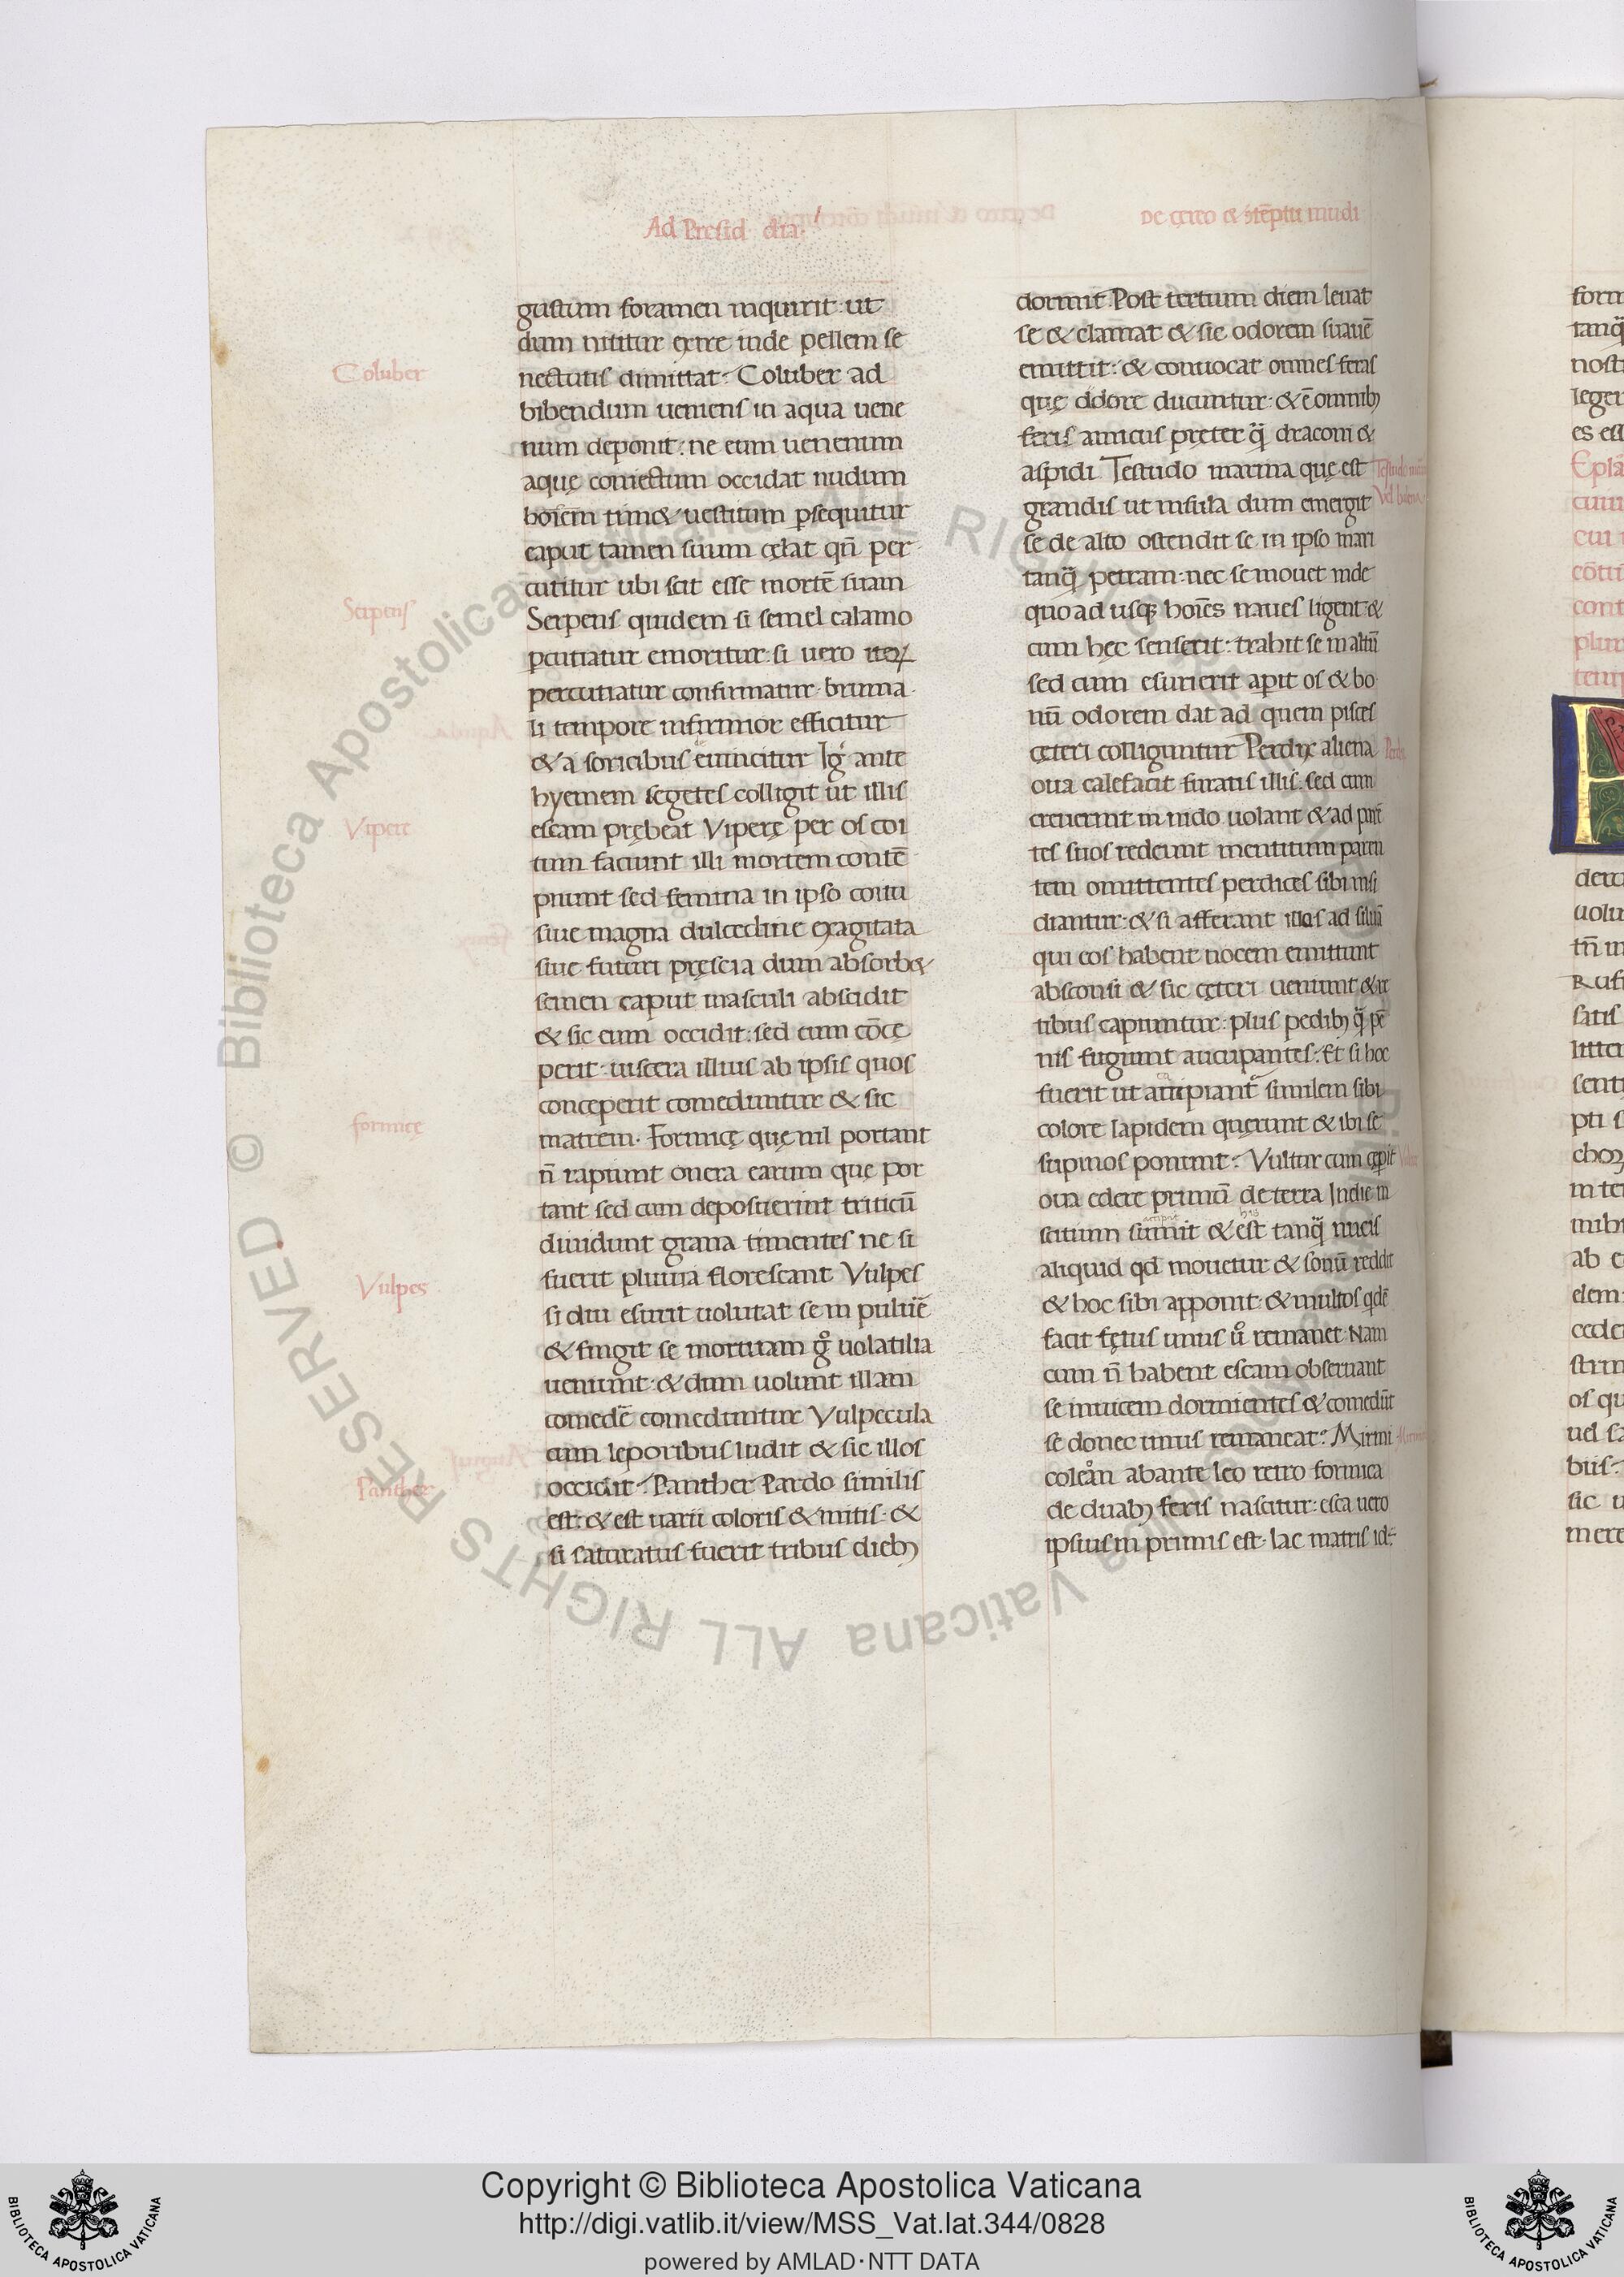 Ad Presid dia
De cereo & ītēptu mudi
Coluber
Serpens
Vipere
formicę
Vulpes
Panther
gustum foramen inquirit ut
dum nititur exire inde pellem se
nectutis dimittat. Coluber ad
bibendum ueniens in aqua uene
num deponit: ne eum uenenum
aquę coniectum occidat nudum
hoīem tim& uestitum psequitur
caput tamen suum cęlat qn̄ per
cutitur ubi scit esse mortē suam
Serpens quidem si semel calamo
pcutiatur emoritur. si uero iteꝝ
percutiatur confirmatur. bruma
li tempore infirmior efficitur
& a soricibus euincitur Igr̄ ante
hyemem segetes colligit ut illis
escam prębeat Viperę per os coi
tum faciunt illi mortem contē
pnunt sed femina in ipso coitu
siue magna dulcedine exagitata
siue futuri pręscia dum absorb&
semen caput masculi abscidit
& sic eum occidit: sed cum cōce
perit: uiscera illius ab ipsis quos
conceperit comeduntur & sic
matrem. Formicę quę nil portant
n̄ rapiunt onera earum que por
tant sed cum deposuerint triticū
diuidunt grana timentes ne si
fuerit pluuia florescant Vulpes
si diu esurit uolutat se in puluē
& fingit se mortuam gͦ uolatilia
ueniunt: & dum uolunt illam
comedē comeduntur Vulpecula
cum leporibus ludit & sic illos
occidit. Panther Pardo similis
est: & est uarii coloris & mitis: &
si saturatus fuerit tribus dieb;
dormit Post tertium diem leuat
se & clamat & sic odorem suauē
emittit: & conuocat omnes feras
quę odore ducuntur: & ē omnib;
feris amicus pręter q̄ draconi &
aspidi Testudo marina quę est
grandis ut insula dum emergit
se de alto ostendit se in ipso mari
tanq̄ petram. nec se mouet inde
quo ad usq; hoīes naues ligent: &
cum hęc senserit: trahit se in altū
sed cum esurierit apit os & bo
nū odorem dat ad quem pisces
cęteri colliguntur Perdix aliena
oua calefacit furatis illis. sed cum
creuerint in nido uolant & ad parē
tes suos redeunt mentitum paren
tem omittentes perdices sibi insi
diantur: & si afferant illas ad siluā
qui eos habent uocem emittunt
absconsi & sic cęteri ueniunt & it
tibus capiuntur: plus pedib; q̄ pē
nis fugiunt aucupantes. Et si hoc
fuerit ut accipiant similem sibi
colore lapidem quęrunt & ibi se
supinos ponunt. Vultur cum cępit
oua edere primū de terra Indie m
scitum sumit & est tanq̄ nucis
aliquid qd mouetur & sonū reddit
& hoc sibi apponit: & multos qdē
facit fętus unus uͦ remanet. Nam
cum n̄ habent escam obseruant
se inuicem dormientes & comedūt
se donec unus remaneat. Mirmi
coleān abante leo retro formica
de duab; feris nascitur: esca uero
ipsius in primis est. lac matris id÷
Testudo
Perdix